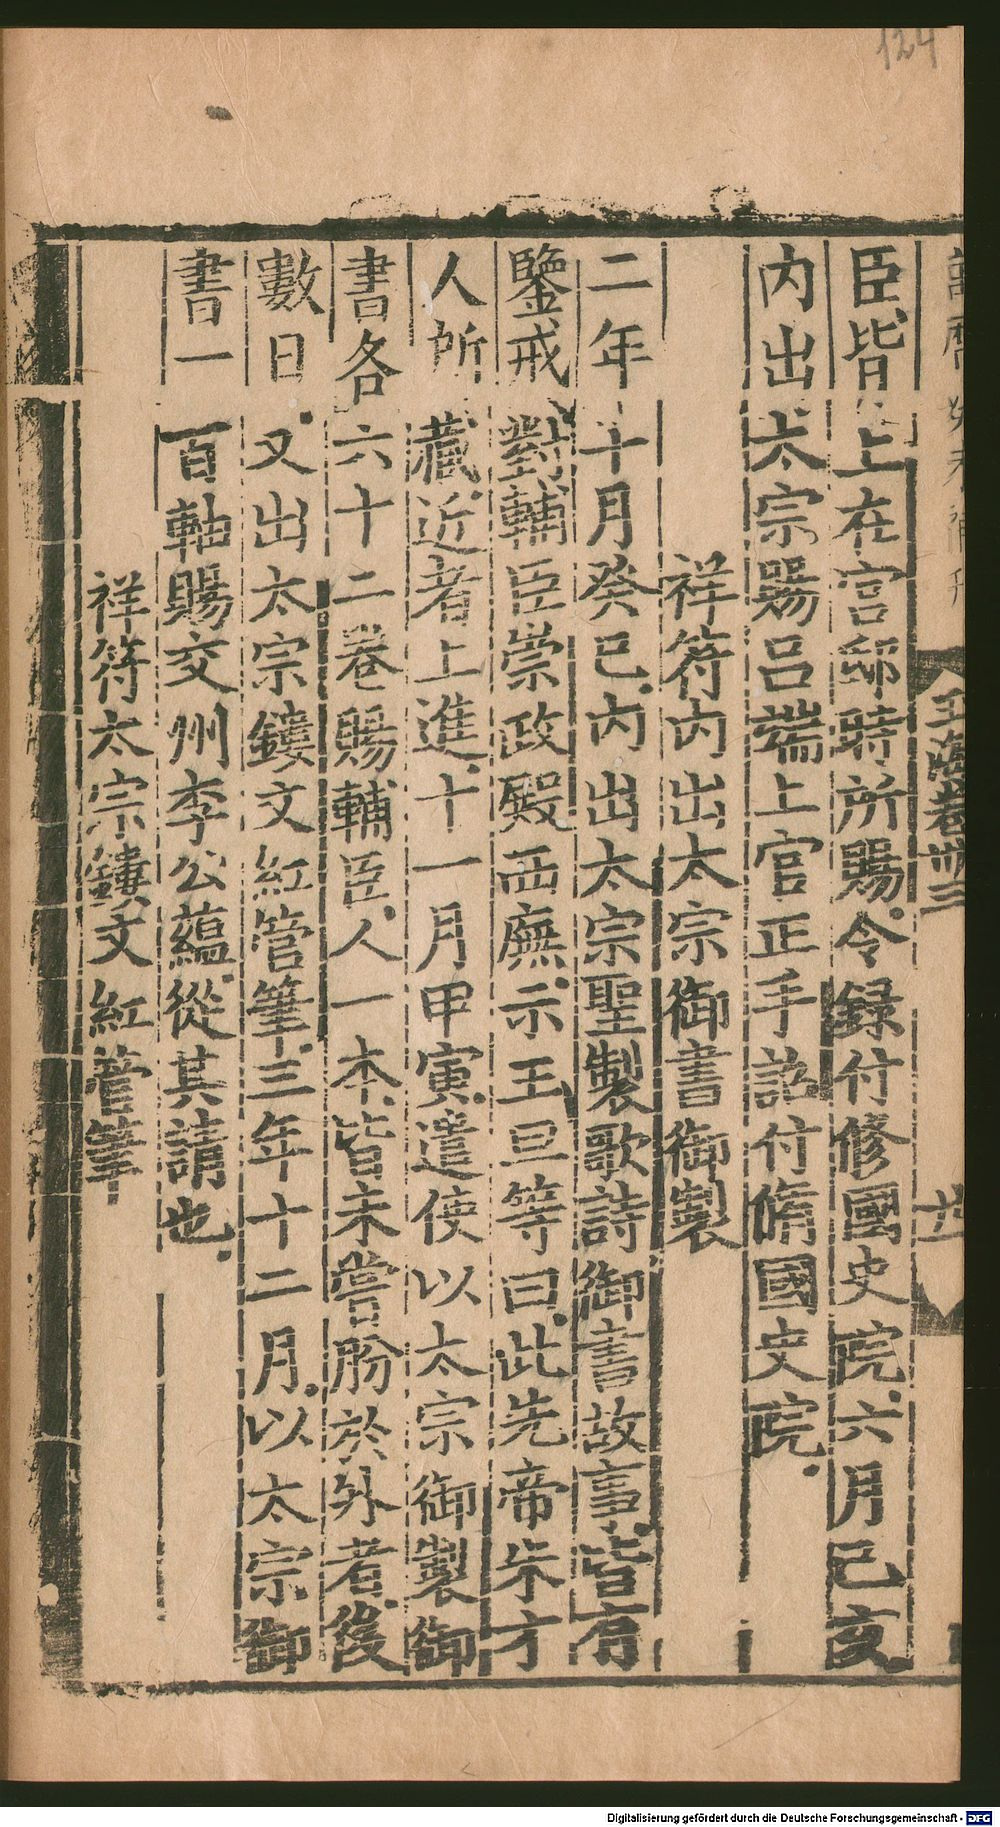 124
萬曆
玉海卷卅三
臣皆上在宫邸時所賜令録付修國史院六月己亥
内出太宗賜呂端上官正手詔付脩國史院
祥符内出太宗御書御製
二年十月癸巳内出太宗聖製歌詩御書故事皆有
鑒戒對輔臣崇政殿西廡示王旦等曰此先帝朱方
人所藏近者上進十一月甲寅遣使以太宗御製御
書各六十二卷賜輔臣人一本皆未嘗朌於外者後
數日又出太宗鏤文紅管筆三年十二月以太宗御
書一百軸賜交州李公蘊從其請也
祥符太宗鏤文紅管筆
Digitalisierung gefördert durch die Deutsche Forschungsgemeinschaft - DFG